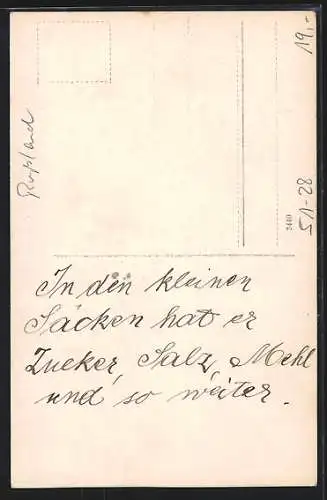 19,-
Rußland
51-28
3440
In den kleinen
Säcken hat er
Zucker, Salz, Mehl
und so weiter.